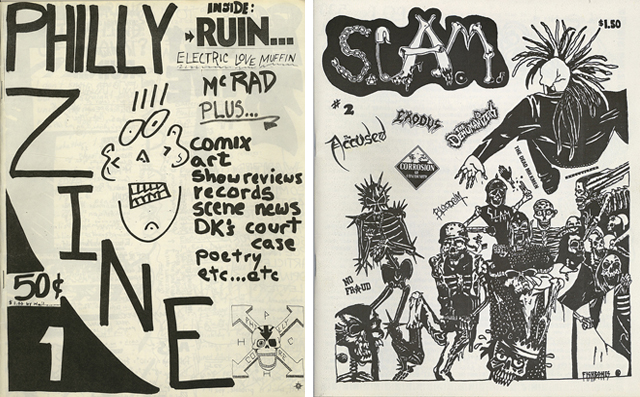 PHILLY
ZINE
INSIDE:
RUIN...
ELECTRIC LOVE MUFFIN
McRAD
PLUS...
comix
art
show reviews
records
scene news
DK's court
case
poetry
etc...etc
50¢
1
S.L.A.M.
$1.50
#2
The Accused
EXODUS
CORROSION
OF CONFORMITY
THE DEAD MILKMEN
NO
FRAUD
FISHBONES